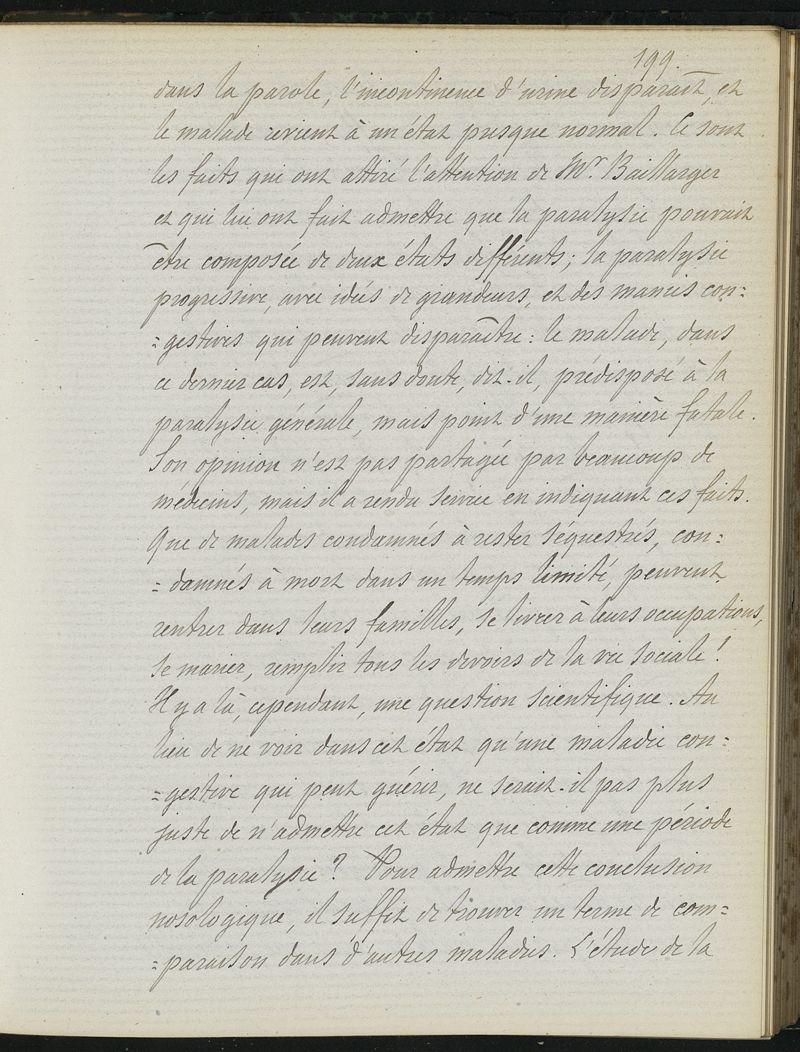 199.
dans la parole, l'incontinence d'urine disparaît, et
le malade revient à un état presque normal. Ce sont
les faits qui ont attiré l'attention de Mr. Baillarger
et qui lui ont fait admettre que la paralysie pouvait
être composée de deux états différents; la paralysie
progressive, avec idées de grandeurs, et des manies con=
=gestives qui peuvent disparaître: le malade, dans
ce dernier cas, est, sans doute, dit-il, prédisposé à la
paralysie générale, mais point d'une manière fatale.
Son opinion n'est pas partagée par beaucoup de
médecins, mais il a rendu service en indiquant ces faits.
Que de malades condamnés à rester séquestrés, con=
=damnés à mort dans un temps limité, peuvent
rentrer dans leurs familles, se livrer à leurs occupations,
se marier, remplir tous les devoirs de la vie sociale!
Il y a là, cependant, une question scientifique. Au
lieu de ne voir dans cet état qu'une maladie con=
=gestive qui peut guérir, ne serait-il pas plus
juste de n'admettre cet état que comme une période
de la paralysie? Pour admettre cette conclusion
nosologique, il suffit de trouver un terme de com=
=paraison dans d'autres maladies. L'étude de la